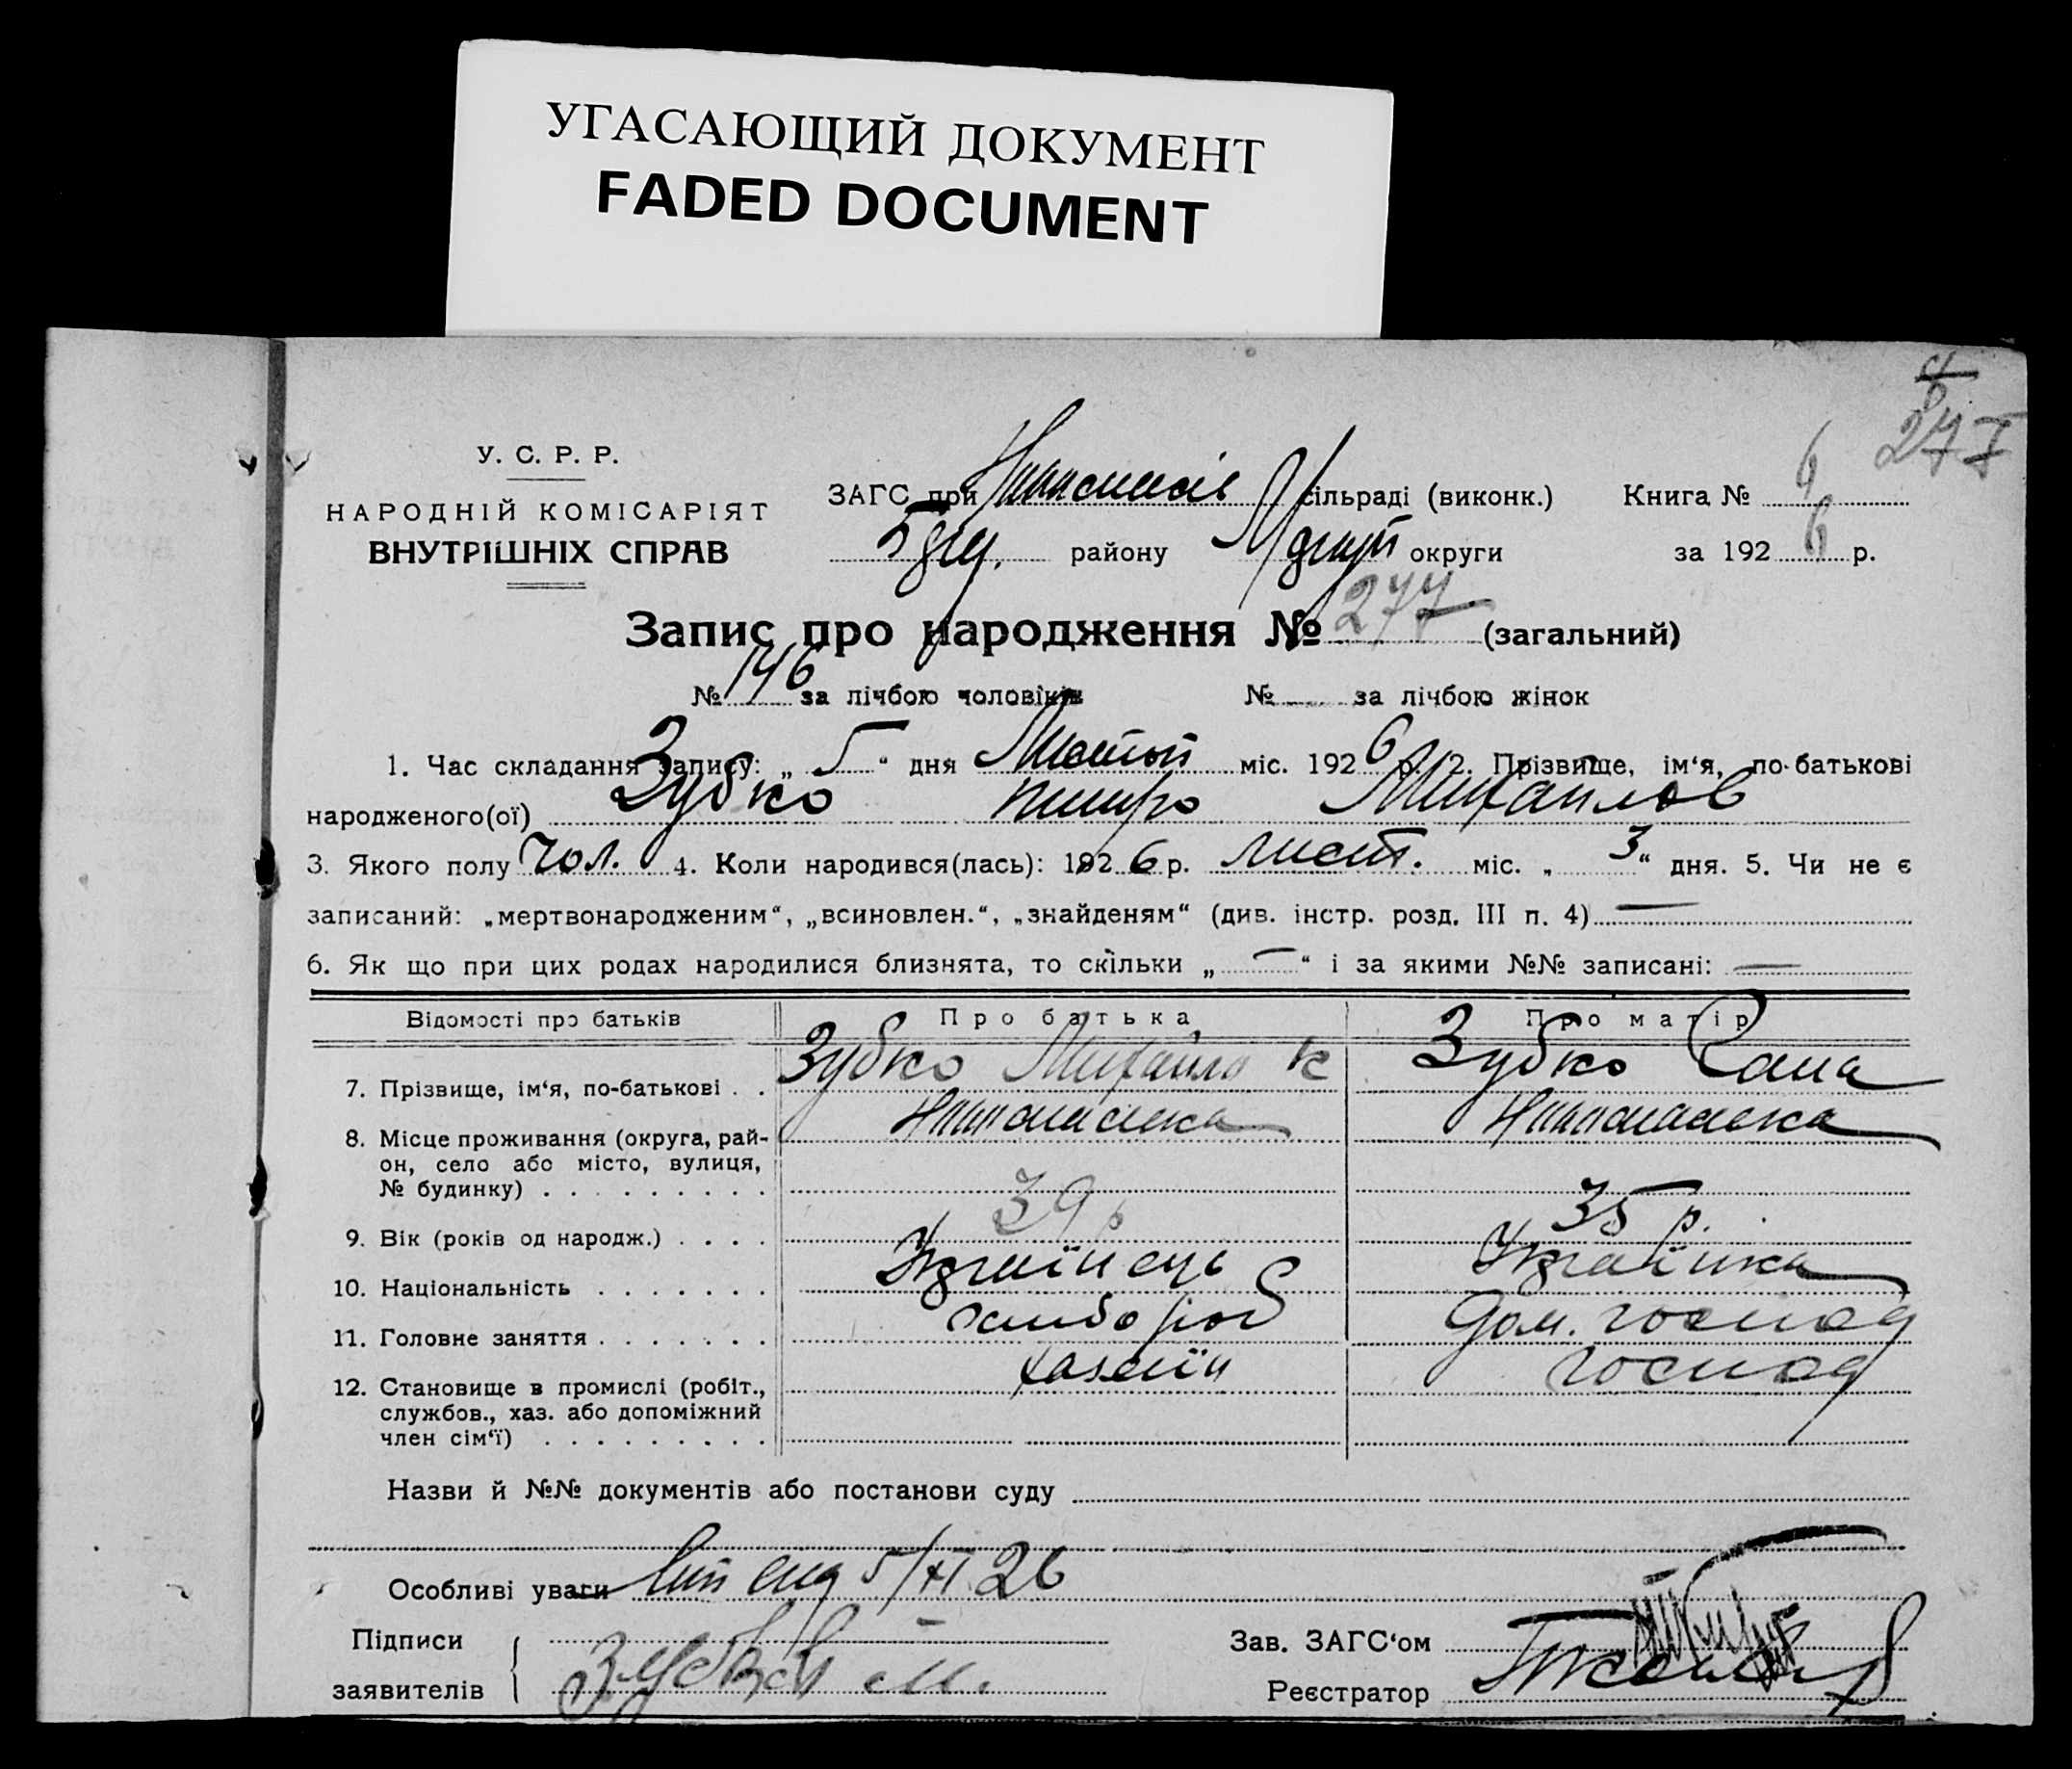 УГАСАЮЩИЙ ДОКУМЕНТ
FADED DOCUMENT
277
У. С. Р. Р.
НАРОДНІЙ КОМІСАРІЯТ
ВНУТРІШНІХ СПРАВ
ЗАГС при сільраді (виконк.)
району округи
Книга № 6
за 1926 р.
Запис про народження № 277 (загальний)
№ 146 за лічбою чоловіків № за лічбою жінок
1. Час складання запису: „ 5 “ дня Листоп міс. 1926 р. 2. Прізвище, ім‘я, по-батькові
народженого(ої) Зубко Михайлов
3. Якого полу Чол. 4. Коли народився(лась): 1926 р. лист. міс. „ 3 “ дня. 5. Чи не є
записаний: „мертвонародженим“, „всиновлен.“, „знайденям“ (див. інстр. розд. III п. 4) —
6. Як що при цих родах народилися близнята, то скільки „ — “ і за якими №№ записані: —
Відомості про батьків Про батька Про матір
7. Прізвище, ім‘я, по-батькові . . Зубко Михайло К Зубко
8. Місце проживання (округа, рай-
он, село або місто, вулиця,
№ будинку) . . . . . . . . .
9. Вік (років од народж.) . . . . 39 р 35 р.
10. Національність . . . . . . . Українець Українка
11. Головне заняття . . . . . . . хлібороб Дом. господ
12. Становище в промислі (робіт.,
службов., хаз. або допоміжний
член сім‘ї) . . . . . . . . . хазяїн господ
Назви й №№ документів або постанови суду
Особливі уваги 5/XI 26
Підписи
заявителів Зубко М.
Зав. ЗАГС‘ом
Реєстратор